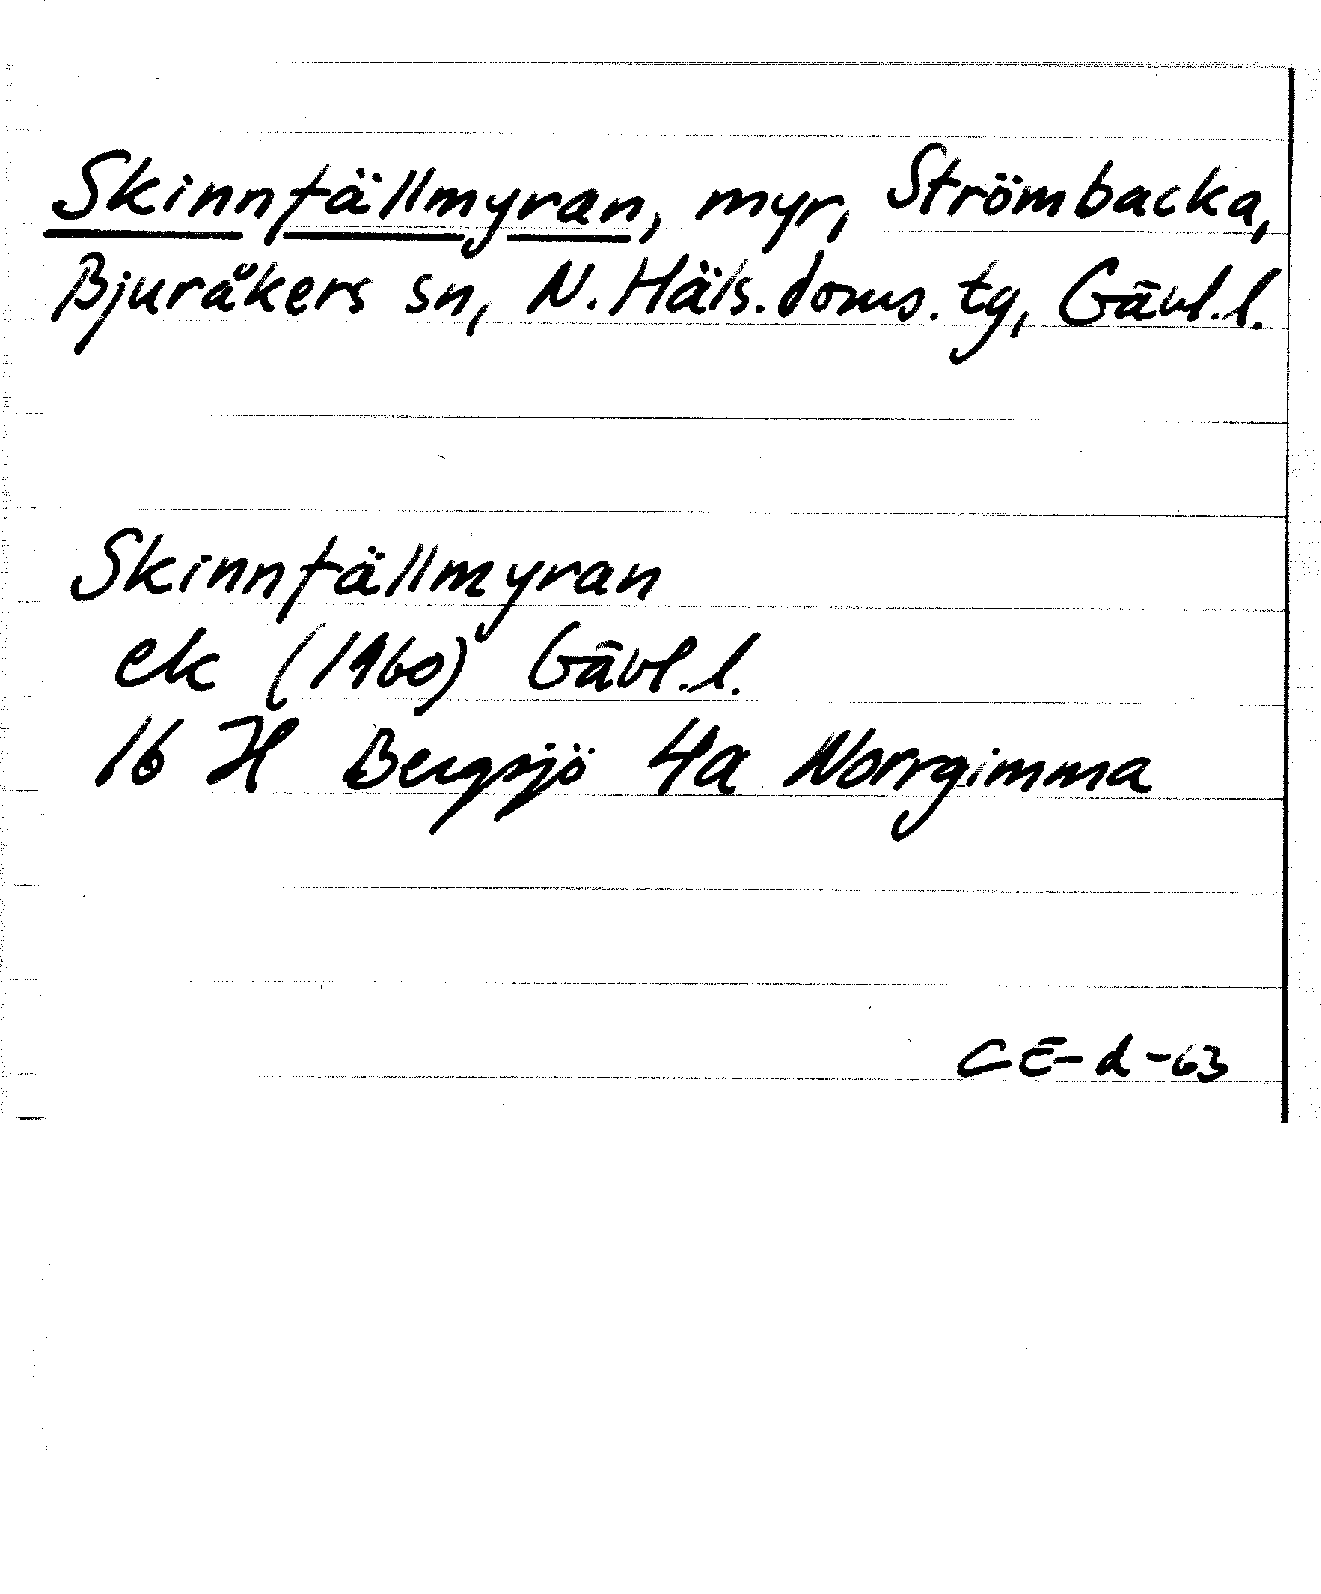 Skinnfällmyran, myr, Strömbacka,
Bjuråkers sn, N. Häls. doms. tg, Gävl. l.
Skinnfällmyran
ek (1960) Gävl. l.
16 H Bergsjö 4a Norrgimma
CE-d-63